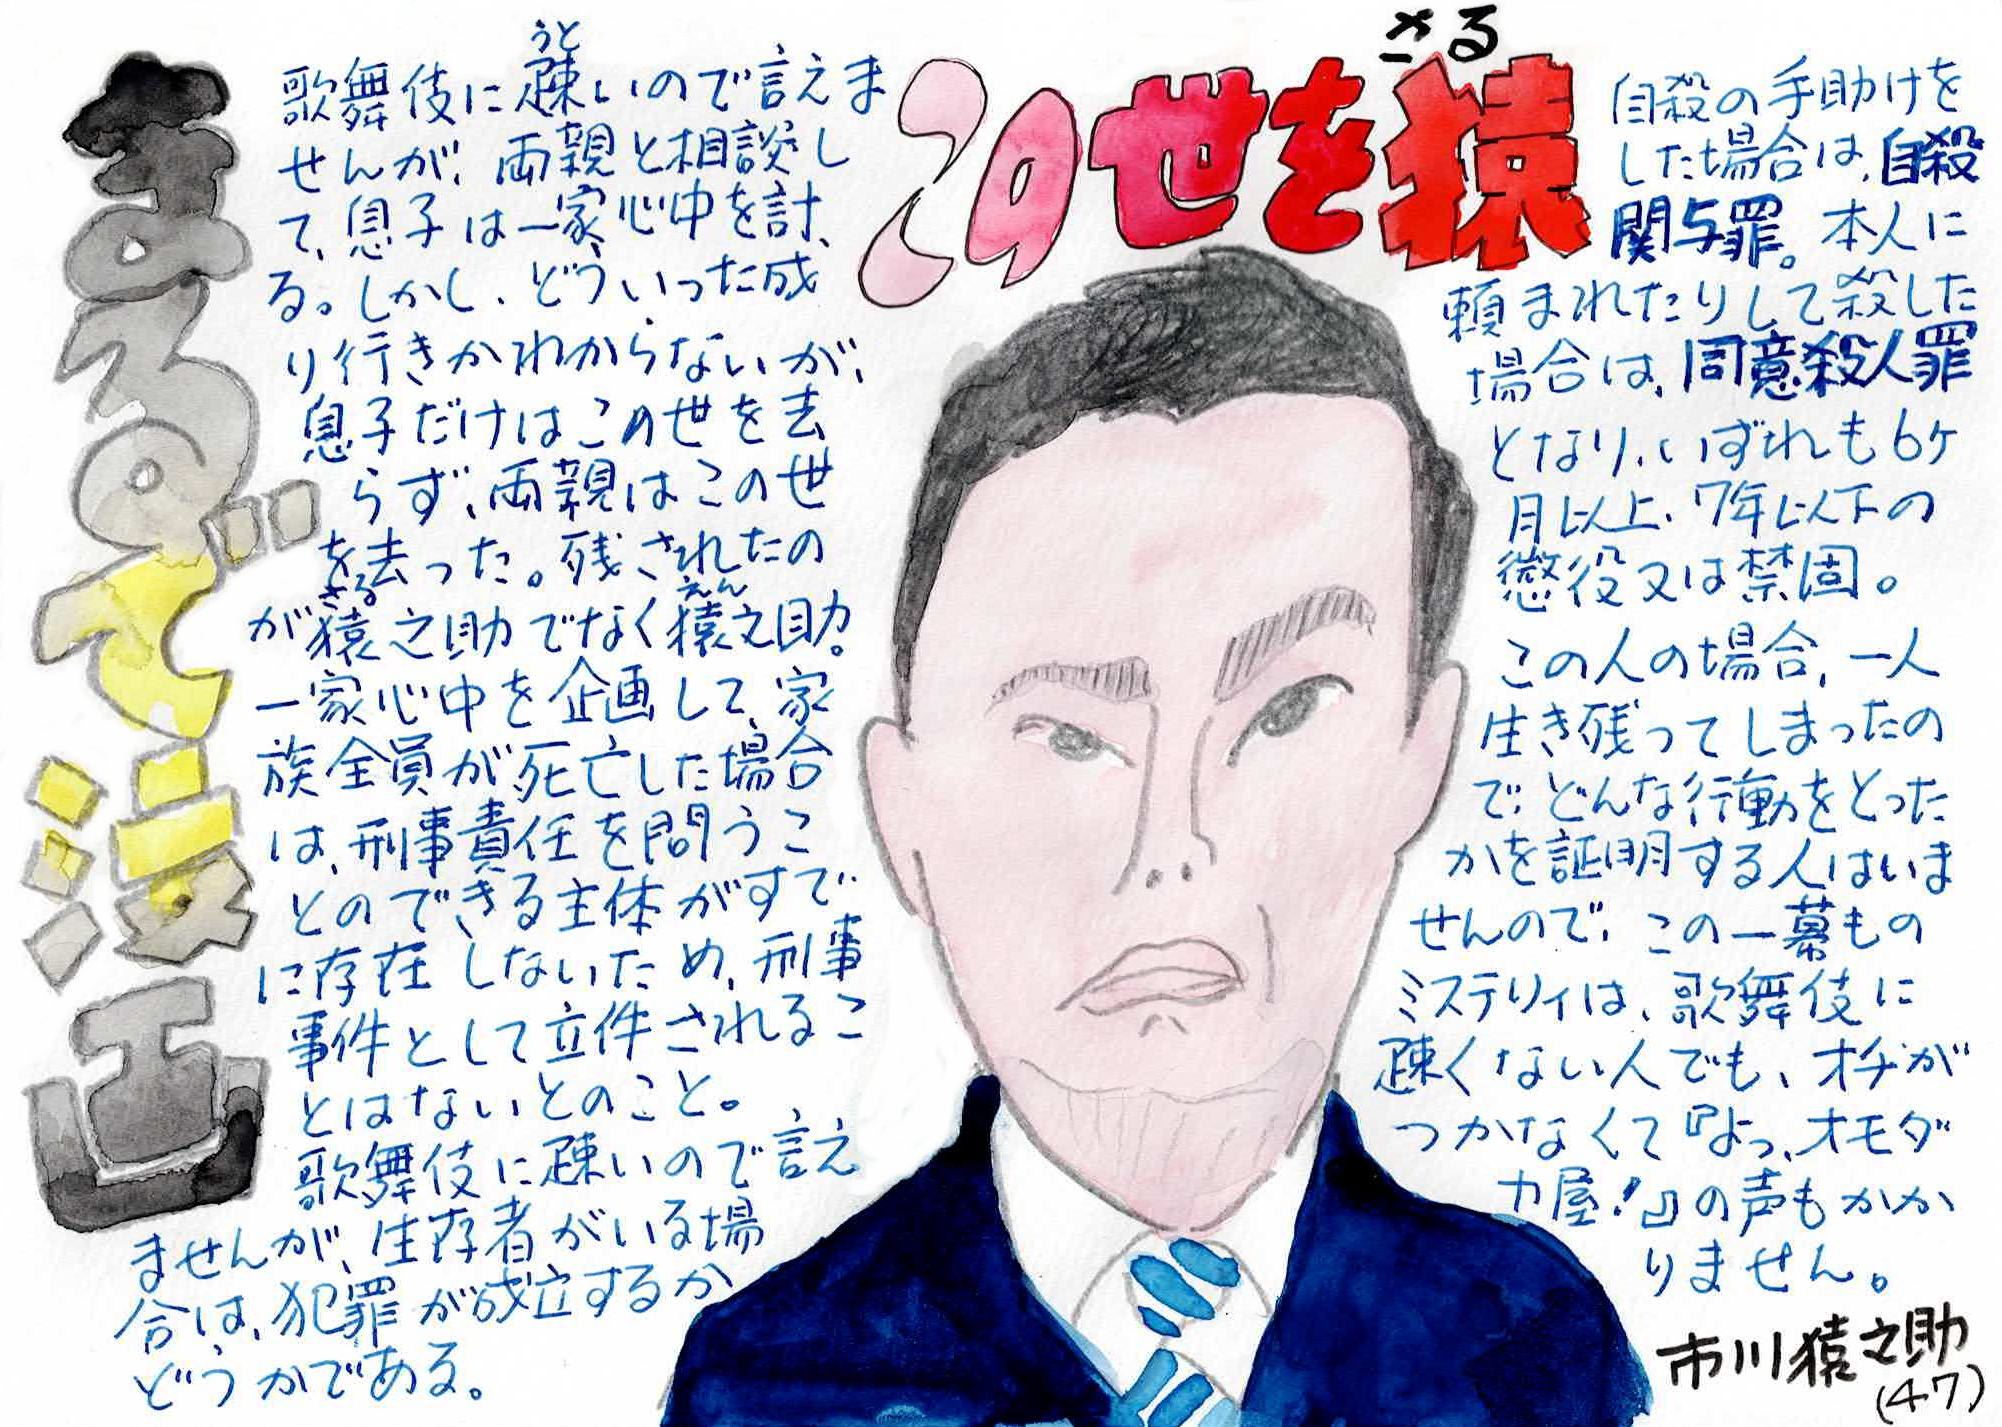 まるで漫画
この世を猿
さる
歌舞伎に疎いので言えま
うと
せんが、両親と相談し
て、息子は一家心中を計
る。しかし、どういった成
り行きかわからないが、
息子だけはこの世を去
らず、両親はこの世
を去った。残されたの
が猿之助でなく猿之助。
さる
えん
一家心中を企画して、家
族全員が死亡した場合
は、刑事責任を問うこ
とのできる主体がすで
に存在しないため、刑事
事件として立件されるこ
とはないとのこと。
歌舞伎に疎いので言え
ませんが、生存者がいる場
合は、犯罪が成立するか
どうかである。
自殺の手助けを
した場合は、自殺
関与罪。本人に
頼まれたりして殺した
場合は、同意殺人罪
となり、いずれも6ヶ
月以上、7年以下の
懲役又は禁固。
この人の場合、一人
生き残ってしまったの
で、どんな行動をとった
かを証明する人はいま
せんので、この一幕もの
ミステリィは、歌舞伎に
疎くない人でも、オチが
つかなくて『よっ、オモダ
カ屋!』の声もかか
りません。
市川猿之助
(47)